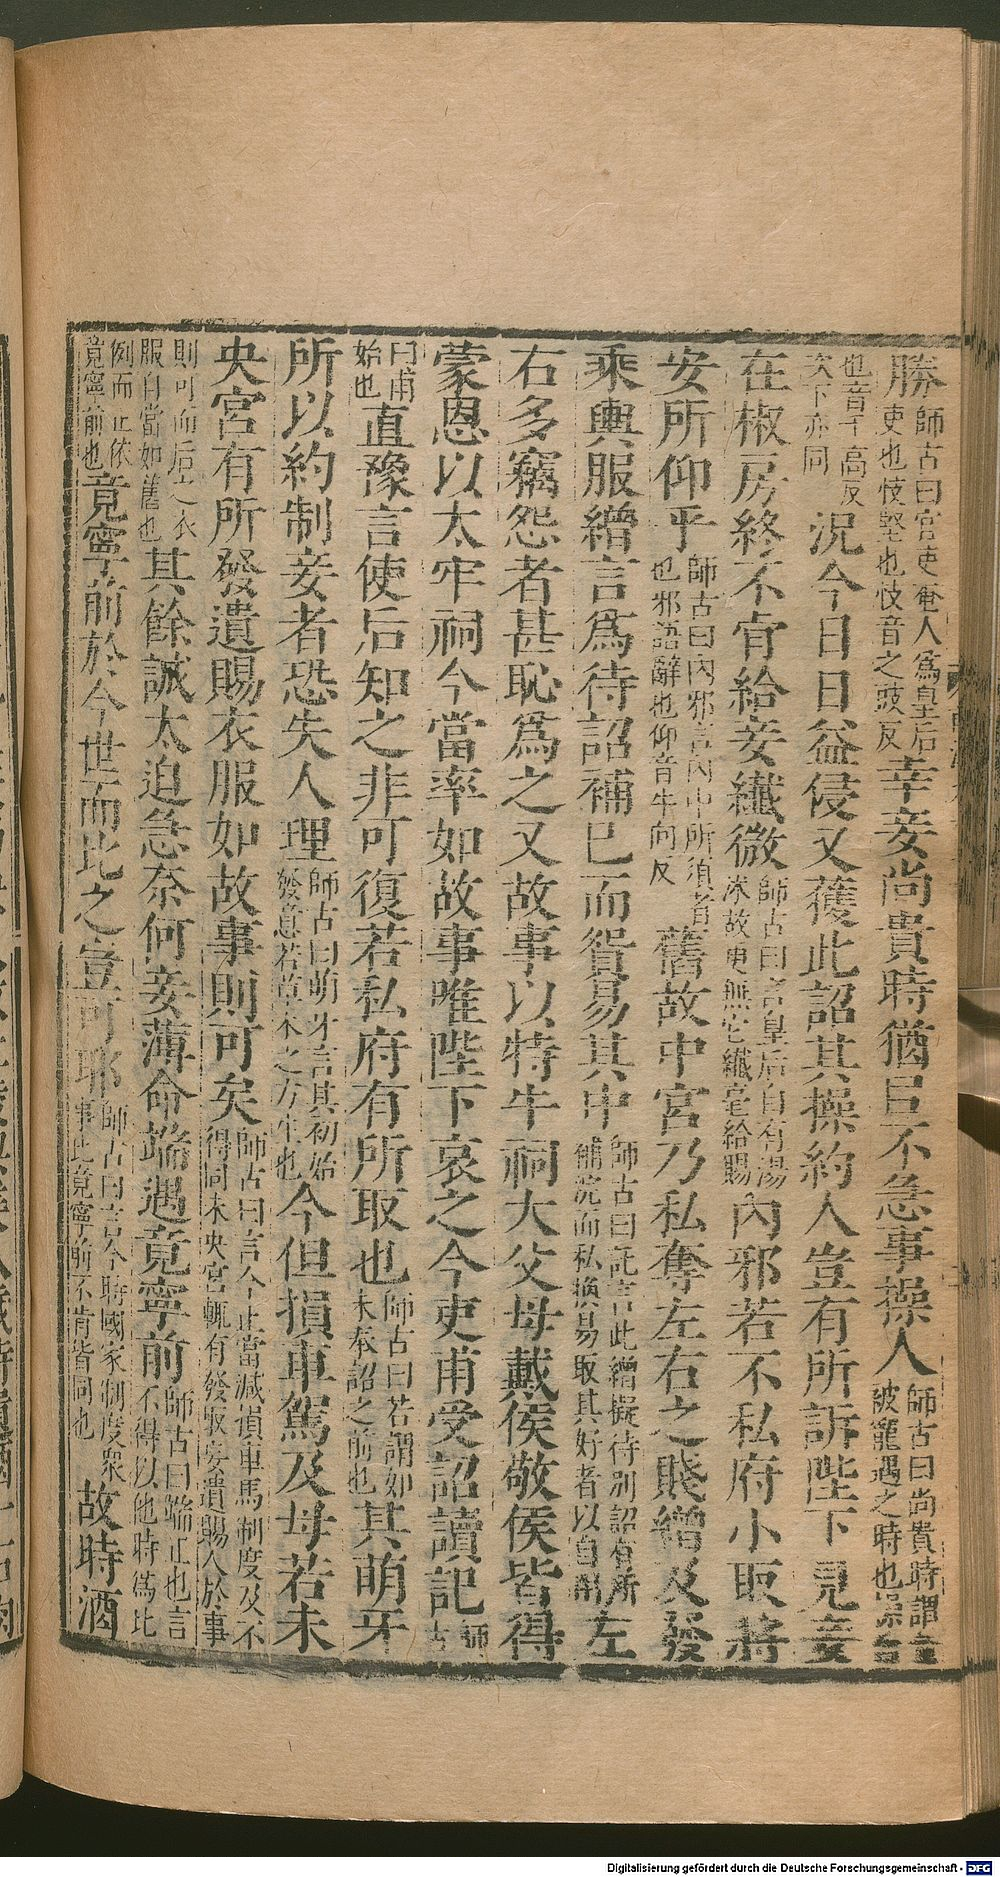 勝師古曰宦吏奄人爲皇后吏也忮堅也忮音之豉反幸妾尚貴時猶以不急事操人師古曰尚貴時謂被寵遇之時也
也音千高反次下亦同況今日日益侵又獲此詔其操約人豈有所訴陛下見妾
在椒房終不肯給妾纖微師古曰言皇后自有湯沐故更無它纖毫給賜內邪若不私府小取將
安所仰乎師古曰內邪言內中所須者也邪語辭也仰音牛向反舊故中宮乃私奪左右之賤繒及發
乘輿服繒言爲待詔補已而貿易其中師古曰託言此繒擬待別詔有所補浣而私換易取其好者以自用左
右多竊怨者甚恥爲之又故事以特牛祠大父母戴侯敬侯皆得
蒙恩以太牢祠今當率如故事唯陛下哀之今吏甫受詔讀記師古
曰甫始也直豫言使后知之非可復若私府有所取也師古曰若謂如未奉詔之前也其萌牙
所以約制妾者恐失人理師古曰萌牙言其初始發意若草木之方生也今但損車駕及母若未
央宮有所發遺賜衣服如故事則可矣師古曰言今止當減損車馬制度及不得同未央宮輒有發取妄遺賜人於事
則可而后之衣服自當如舊也其餘誠太迫急奈何妾薄命端遇竟寧前師古曰端正也言不得以他時爲比
例而正依竟寧前也竟寧前於今世而比之豈可耶師古曰言今時國家制度衆事比竟寧前不肯皆同也故時酒
Digitalisierung gefördert durch die Deutsche Forschungsgemeinschaft - DFG